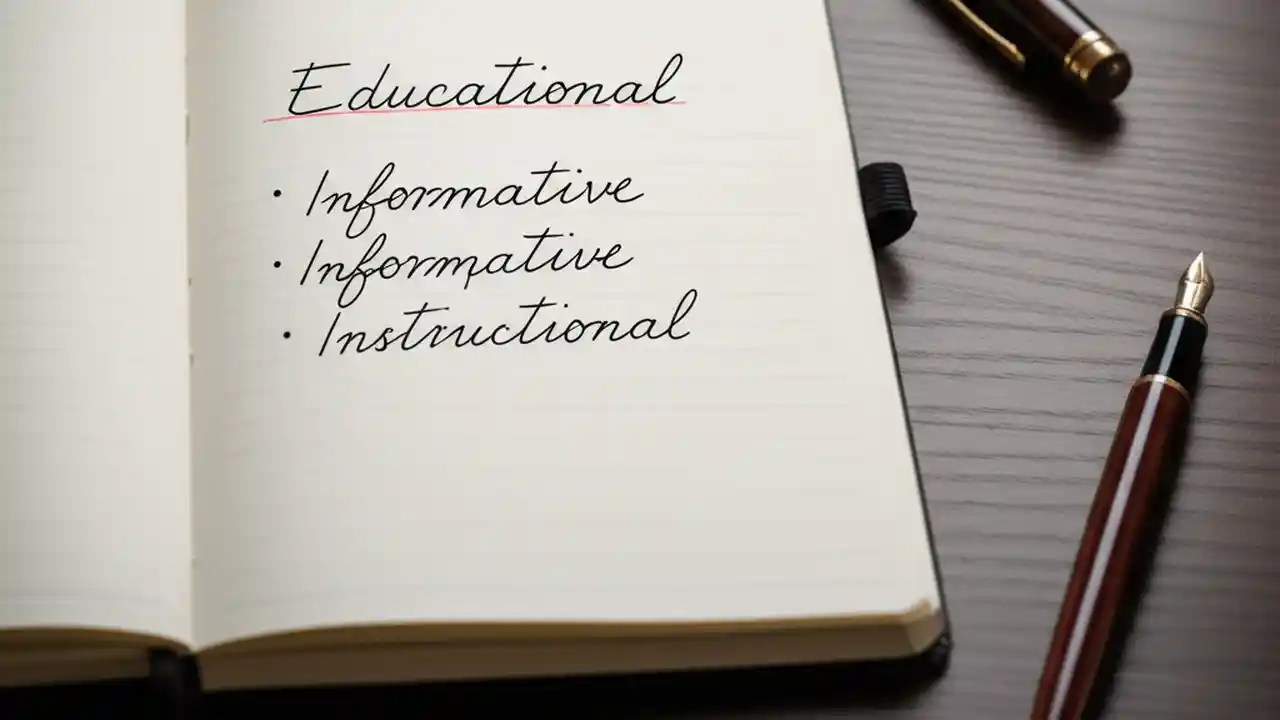 Educational
· Informative
· Informative
· Instructional